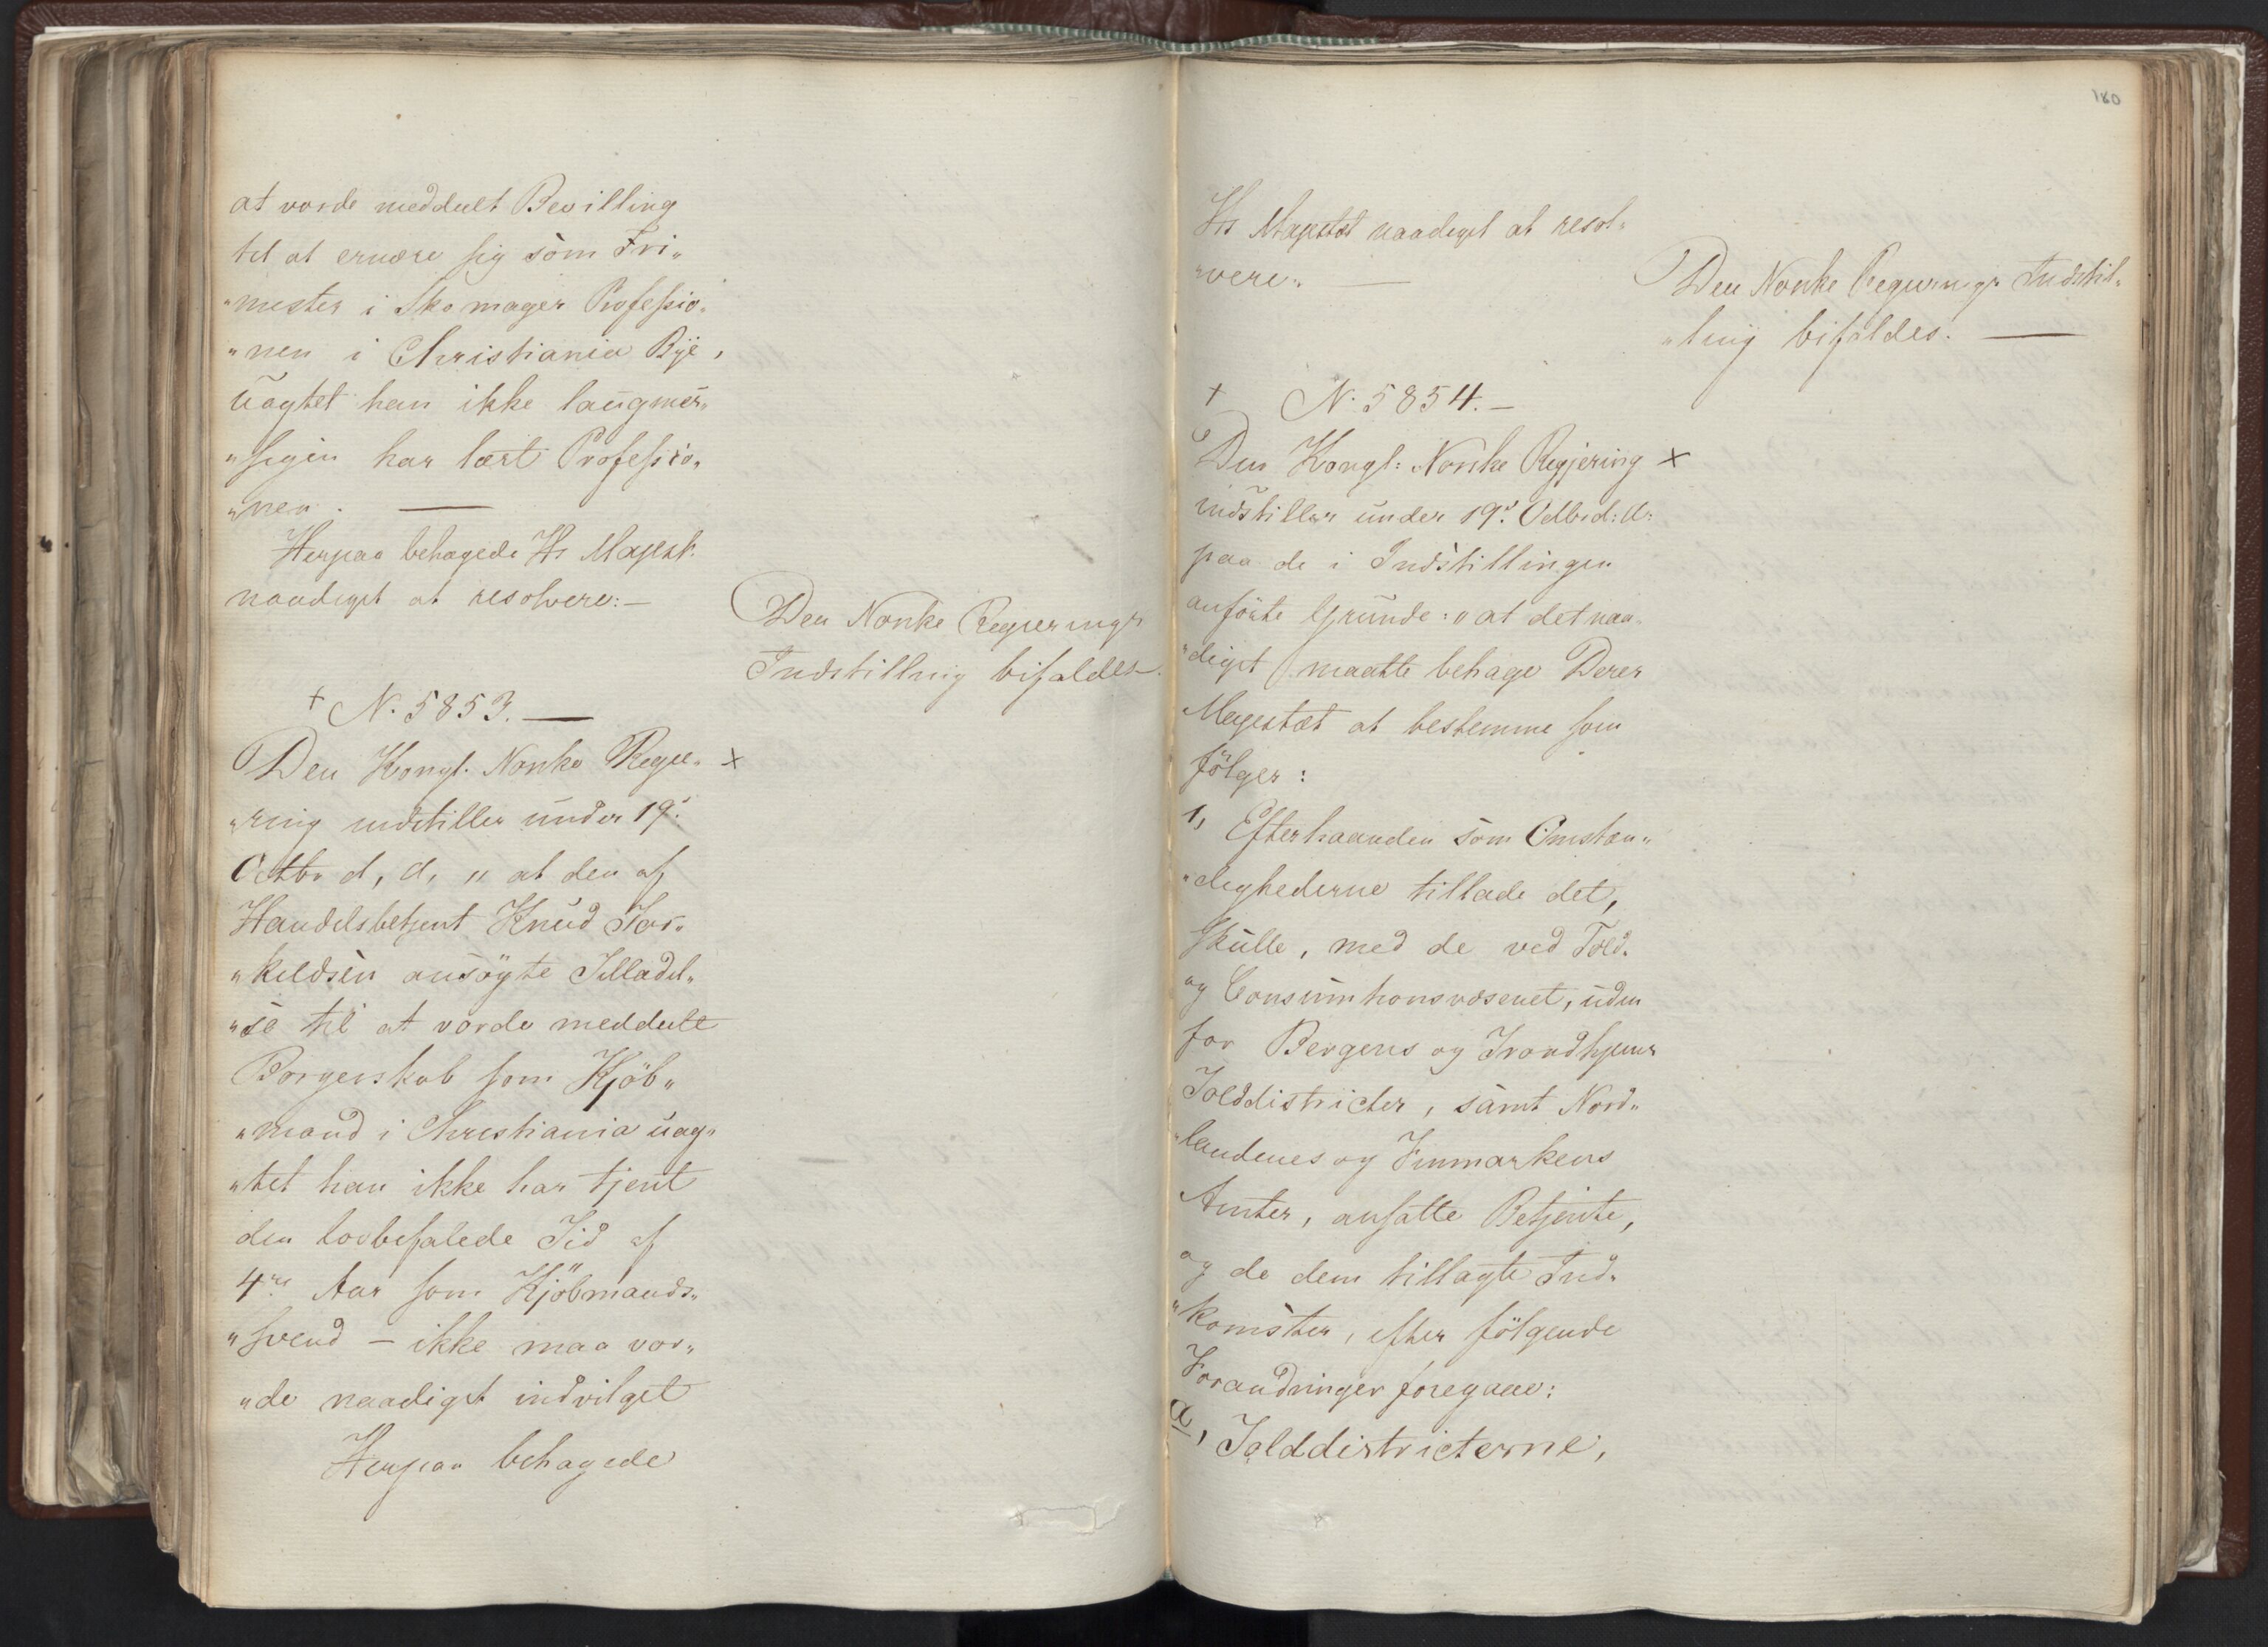 at vorde meddeelt Bevilling
til at ernære sig som Fri„
„mester i Skomager Professio„
„nen i Christiania Bye,
uagtet han ikke laugmæs„
„sigen har lært Professio„
„nen. —
Herpaa behagede Hs Majest.
naadigst at resolvere:—
Den Norske Regierings
Indstilling bifaldes.
+ N. 5853. —
Den Kongl. Norske Regie„ x
„ring indstiller under 19.
Octbr d, A, „ at den af
Handelsbetjent Knud Tor„
„kildsen ansögte Tilladel„
„se til at vorde meddeelt
Borgerskab som Kjöb„
„mand i Christiania uag„
„tet han ikke har tjent
den lovbefalede Tid af
4re Aar som Kjöbmands„
„svend – ikke maa vor„
„de naadigst indvilget
Herpaa behagede
180
Hs Majestæt naadigst at resol„
„vere„ —
Den Norske Regierings Indstil„
„ling bifaldes. —
+ N. 5854.—
Den Kongl: Norske Regjering x
indstiller under 19. Octbr d: A:
paa de i Indstillingen
anförte Grunde: „at det naa„
„digst maatte behage Deres
Majestæt at bestemme som
fölger:
1, Efterhaanden som Omstæn„
„dighederne tillade det,
skulle, med de ved Told„
og Consumtionsvæsenet, uden
for Bergens og Trondhjems
Tolddistricter, samt Nord„
„landenes og Finmarkens
Amter, ansatte Betjente,
og de dem tillagte Ind„
„komster, efter fölgende
Forandringer foregaae:
a, Tolddistricterne,